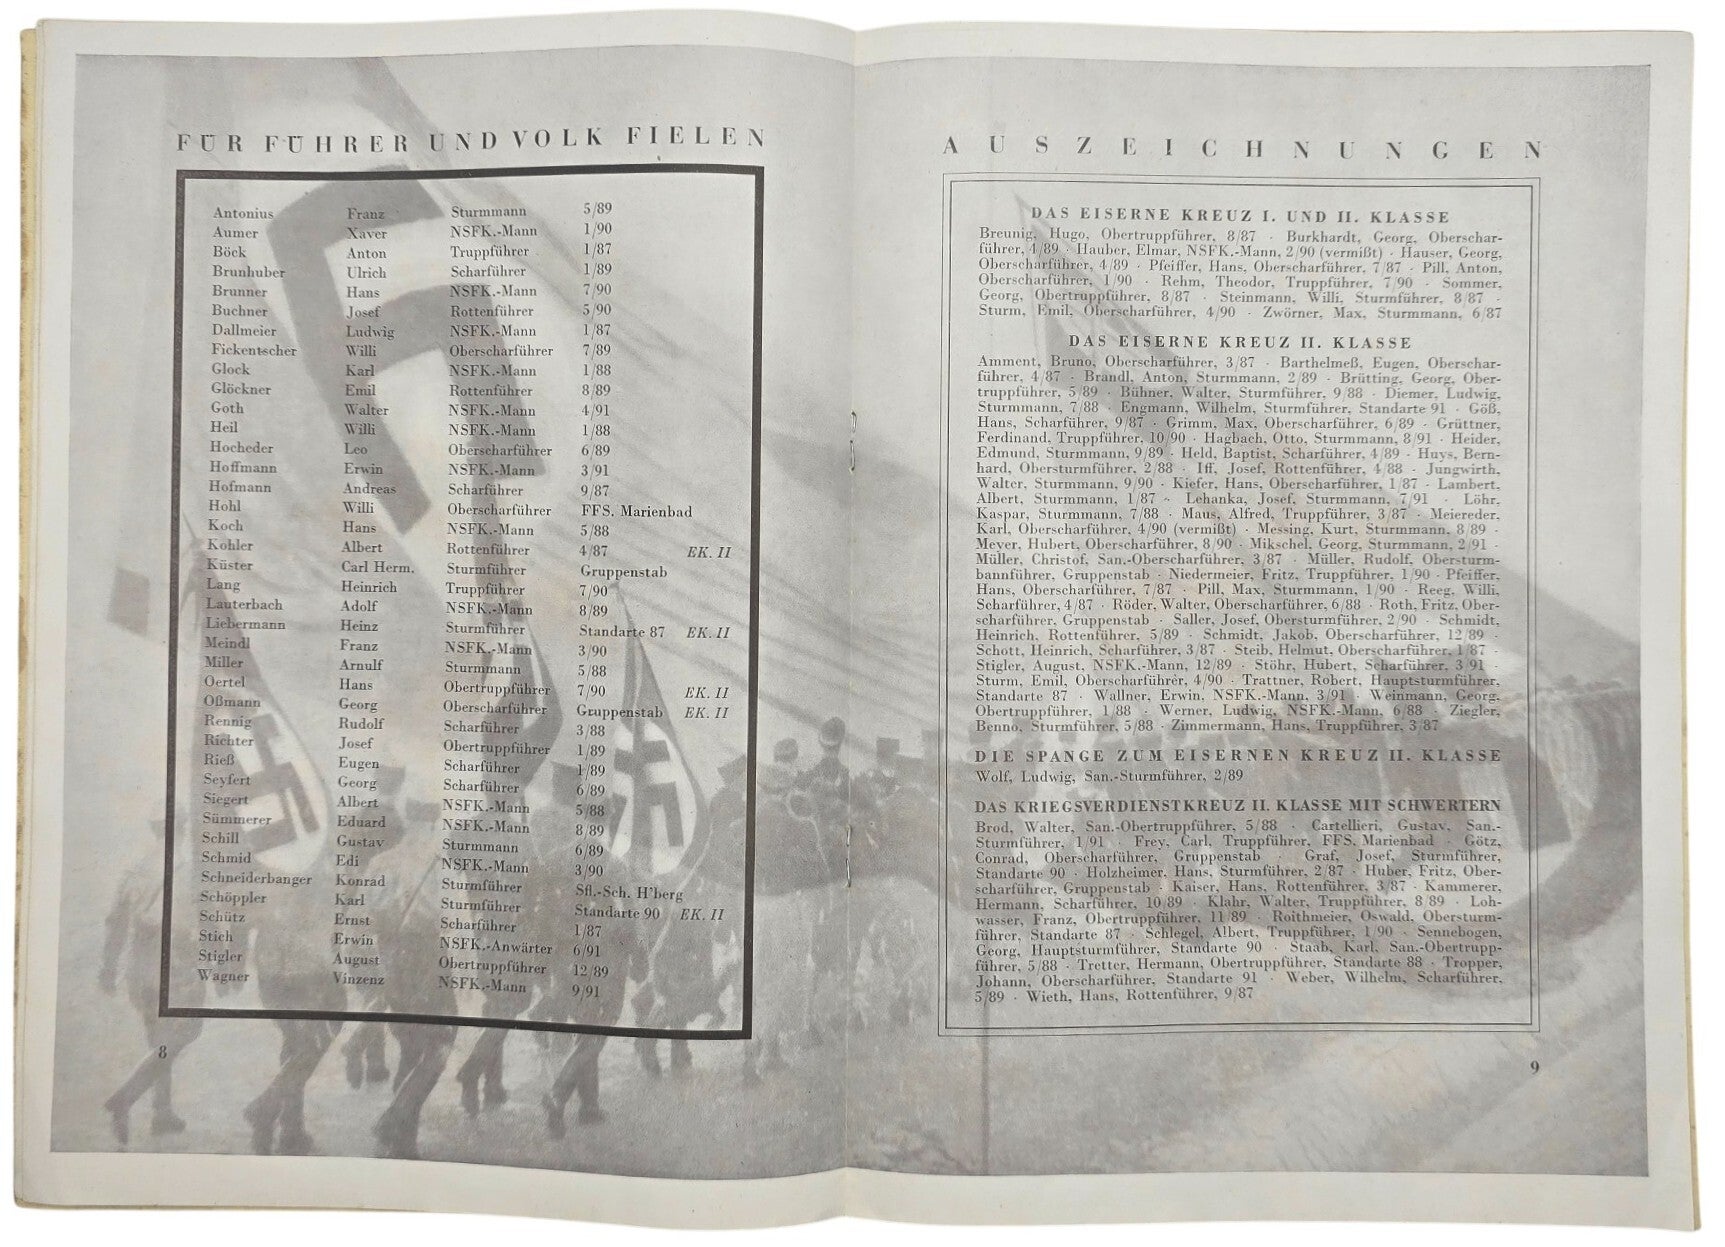 FÜR FÜHRER UND VOLK FIELEN
Antonius Franz Sturmmann 5/89
Aumer Xaver NSFK.-Mann 1/90
Böck Anton Truppführer 1/87
Brunhuber Ulrich Scharführer 1/89
Brunner Hans NSFK.-Mann 7/90
Buchner Josef Rottenführer 5/90
Dallmeier Ludwig NSFK.-Mann 1/87
Fickentscher Willi Oberscharführer 7/89
Glock Karl NSFK.-Mann 1/88
Glöckner Emil Rottenführer 8/89
Goth Walter NSFK.-Mann 4/91
Heil Willi NSFK.-Mann 1/88
Hocheder Leo Oberscharführer 6/89
Hoffmann Erwin NSFK.-Mann 3/91
Hofmann Andreas Scharführer 9/87
Hohl Willi Oberscharführer FFS. Marienbad
Koch Hans NSFK.-Mann 5/88
Kohler Albert Rottenführer 4/87 EK. II
Küster Carl Herm. Sturmführer Gruppenstab
Lang Heinrich Truppführer 7/90
Lauterbach Adolf NSFK.-Mann 8/89
Liebermann Heinz Sturmführer Standarte 87 EK. II
Meindl Franz NSFK.-Mann 3/90
Miller Arnulf Sturmmann 5/88
Oertel Hans Obertruppführer 7/90 EK. II
Oßmann Georg Oberscharführer Gruppenstab EK. II
Rennig Rudolf Scharführer 3/88
Richter Josef Obertruppführer 1/89
Rieß Eugen Scharführer 1/89
Seyfert Georg Scharführer 6/89
Siegert Albert NSFK.-Mann 5/88
Sümmerer Eduard NSFK.-Mann 8/89
Schill Gustav Sturmmann 6/89
Schmid Edi NSFK.-Mann 3/90
Schneiderbanger Konrad Sturmführer Sfl.-Sch. H'berg
Schöppler Karl Sturmführer Standarte 90 EK. II
Schütz Ernst Scharführer 1/87
Stich Erwin NSFK.-Anwärter 6/91
Stigler August Obertruppführer 12/89
Wagner Vinzenz NSFK.-Mann 9/91
8
AUSZEICHNUNGEN
DAS EISERNE KREUZ I. UND II. KLASSE
Breunig, Hugo, Obertruppführer, 8/87 · Burkhardt, Georg, Oberschar-
führer, 4/89 · Hauber, Elmar, NSFK.-Mann, 2/90 (vermißt) · Hauser, Georg,
Oberscharführer, 4/89 · Pfeiffer, Hans, Oberscharführer, 7/87 · Pill, Anton,
Oberscharführer, 1/90 · Rehm, Theodor, Truppführer, 7/90 · Sommer,
Georg, Obertruppführer, 8/87 · Steinmann, Willi, Sturmführer, 8/87 ·
Sturm, Emil, Oberscharführer, 4/90 · Zwörner, Max, Sturmmann, 6/87
DAS EISERNE KREUZ II. KLASSE
Amment, Bruno, Oberscharführer, 3/87 · Barthelmeß, Eugen, Oberschar-
führer, 4/87 · Brandl, Anton, Sturmmann, 2/89 · Brütting, Georg, Ober-
truppführer, 5/89 · Bühner, Walter, Sturmführer, 9/88 · Diemer, Ludwig,
Sturmmann, 7/88 · Engmann, Wilhelm, Sturmführer, Standarte 91 · Göß,
Hans, Scharführer, 9/87 · Grimm, Max, Oberscharführer, 6/89 · Grüttner,
Ferdinand, Truppführer, 10/90 · Hagbach, Otto, Sturmmann, 8/91 · Heider,
Edmund, Sturmmann, 9/89 · Held, Baptist, Scharführer, 4/89 · Huys, Bern-
hard, Obersturmführer, 2/88 · Iff, Josef, Rottenführer, 4/88 · Jungwirth,
Walter, Sturmmann, 9/90 · Kiefer, Hans, Oberscharführer, 1/87 · Lambert,
Albert, Sturmmann, 1/87 · Lehanka, Josef, Sturmmann, 7/91 · Löhr,
Kaspar, Sturmmann, 7/88 · Maus, Alfred, Truppführer, 3/87 · Meiereder,
Karl, Oberscharführer, 4/90 (vermißt) · Messing, Kurt, Sturmmann, 8/89 ·
Meyer, Hubert, Oberscharführer, 8/90 · Mikschel, Georg, Sturmmann, 2/91 ·
Müller, Christof, San.-Oberscharführer, 3/87 · Müller, Rudolf, Obersturm-
bannführer, Gruppenstab · Niedermeier, Fritz, Truppführer, 1/90 · Pfeiffer,
Hans, Oberscharführer, 7/87 · Pill, Max, Sturmmann, 1/90 · Reeg, Willi,
Scharführer, 4/87 · Röder, Walter, Oberscharführer, 6/88 · Roth, Fritz, Ober-
scharführer, Gruppenstab · Saller, Josef, Obersturmführer, 2/90 · Schmidt,
Heinrich, Rottenführer, 5/89 · Schmidt, Jakob, Oberscharführer, 12/89 ·
Schott, Heinrich, Scharführer, 3/87 · Steib, Helmut, Oberscharführer, 1/87 ·
Stigler, August, NSFK.-Mann, 12/89 · Stöhr, Hubert, Scharführer, 3/91 ·
Sturm, Emil, Oberscharführer, 4/90 · Trattner, Robert, Hauptsturmführer,
Standarte 87 · Wallner, Erwin, NSFK.-Mann, 3/91 · Weinmann, Georg,
Obertruppführer, 1/88 · Werner, Ludwig, NSFK.-Mann, 6/88 · Ziegler,
Benno, Sturmführer, 5/88 · Zimmermann, Hans, Truppführer, 3/87
DIE SPANGE ZUM EISERNEN KREUZ II. KLASSE
Wolf, Ludwig, San.-Sturmführer, 2/89
DAS KRIEGSVERDIENSTKREUZ II. KLASSE MIT SCHWERTERN
Brod, Walter, San.-Obertruppführer, 5/88 · Cartellieri, Gustav, San.-
Sturmführer, 1/91 · Frey, Carl, Truppführer, FFS. Marienbad · Götz,
Conrad, Oberscharführer, Gruppenstab · Graf, Josef, Sturmführer,
Standarte 90 · Holzheimer, Hans, Sturmführer, 2/87 · Huber, Fritz, Ober-
scharführer, Gruppenstab · Kaiser, Hans, Rottenführer, 3/87 · Kammerer,
Hermann, Scharführer, 10/89 · Klahr, Walter, Truppführer, 8/89 · Loh-
wasser, Franz, Obertruppführer, 11/89 · Roithmeier, Oswald, Obersturm-
führer, Standarte 87 · Schlegel, Albert, Truppführer, 1/90 · Sennebogen,
Georg, Hauptsturmführer, Standarte 90 · Staab, Karl, San.-Obertrupp-
führer, 5/88 · Tretter, Hermann, Obertruppführer, Standarte 88 · Tropper,
Johann, Oberscharführer, Standarte 91 · Weber, Wilhelm, Scharführer,
5/89 · Wieth, Hans, Rottenführer, 9/87
9